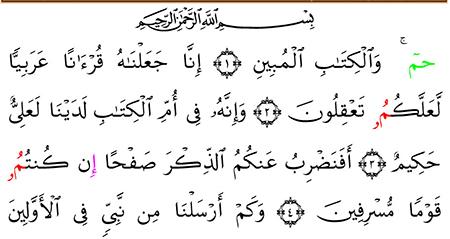 بِسْمِ اللَّهِ الرَّحْمَٰنِ الرَّحِيمِ
حمٓ ۚ وَالْكِتَٰبِ الْمُبِينِ ﴿١﴾ إِنَّا جَعَلْنَٰهُ قُرْءَٰنًا عَرَبِيًّا
لَّعَلَّكُمُۥ تَعْقِلُونَ ﴿٢﴾ وَإِنَّهُۥ فِى أُمِّ الْكِتَٰبِ لَدَيْنَا لَعَلِىٌّ
حَكِيمٌ ﴿٣﴾ أَفَنَضْرِبُ عَنكُمُ الذِّكْرَ صَفْحًا إِن كُنتُمُۥ
قَوْمًا مُّسْرِفِينَ ﴿٤﴾ وَكَمْ أَرْسَلْنَا مِن نَّبِىٍّ فِى الْأَوَّلِينَ